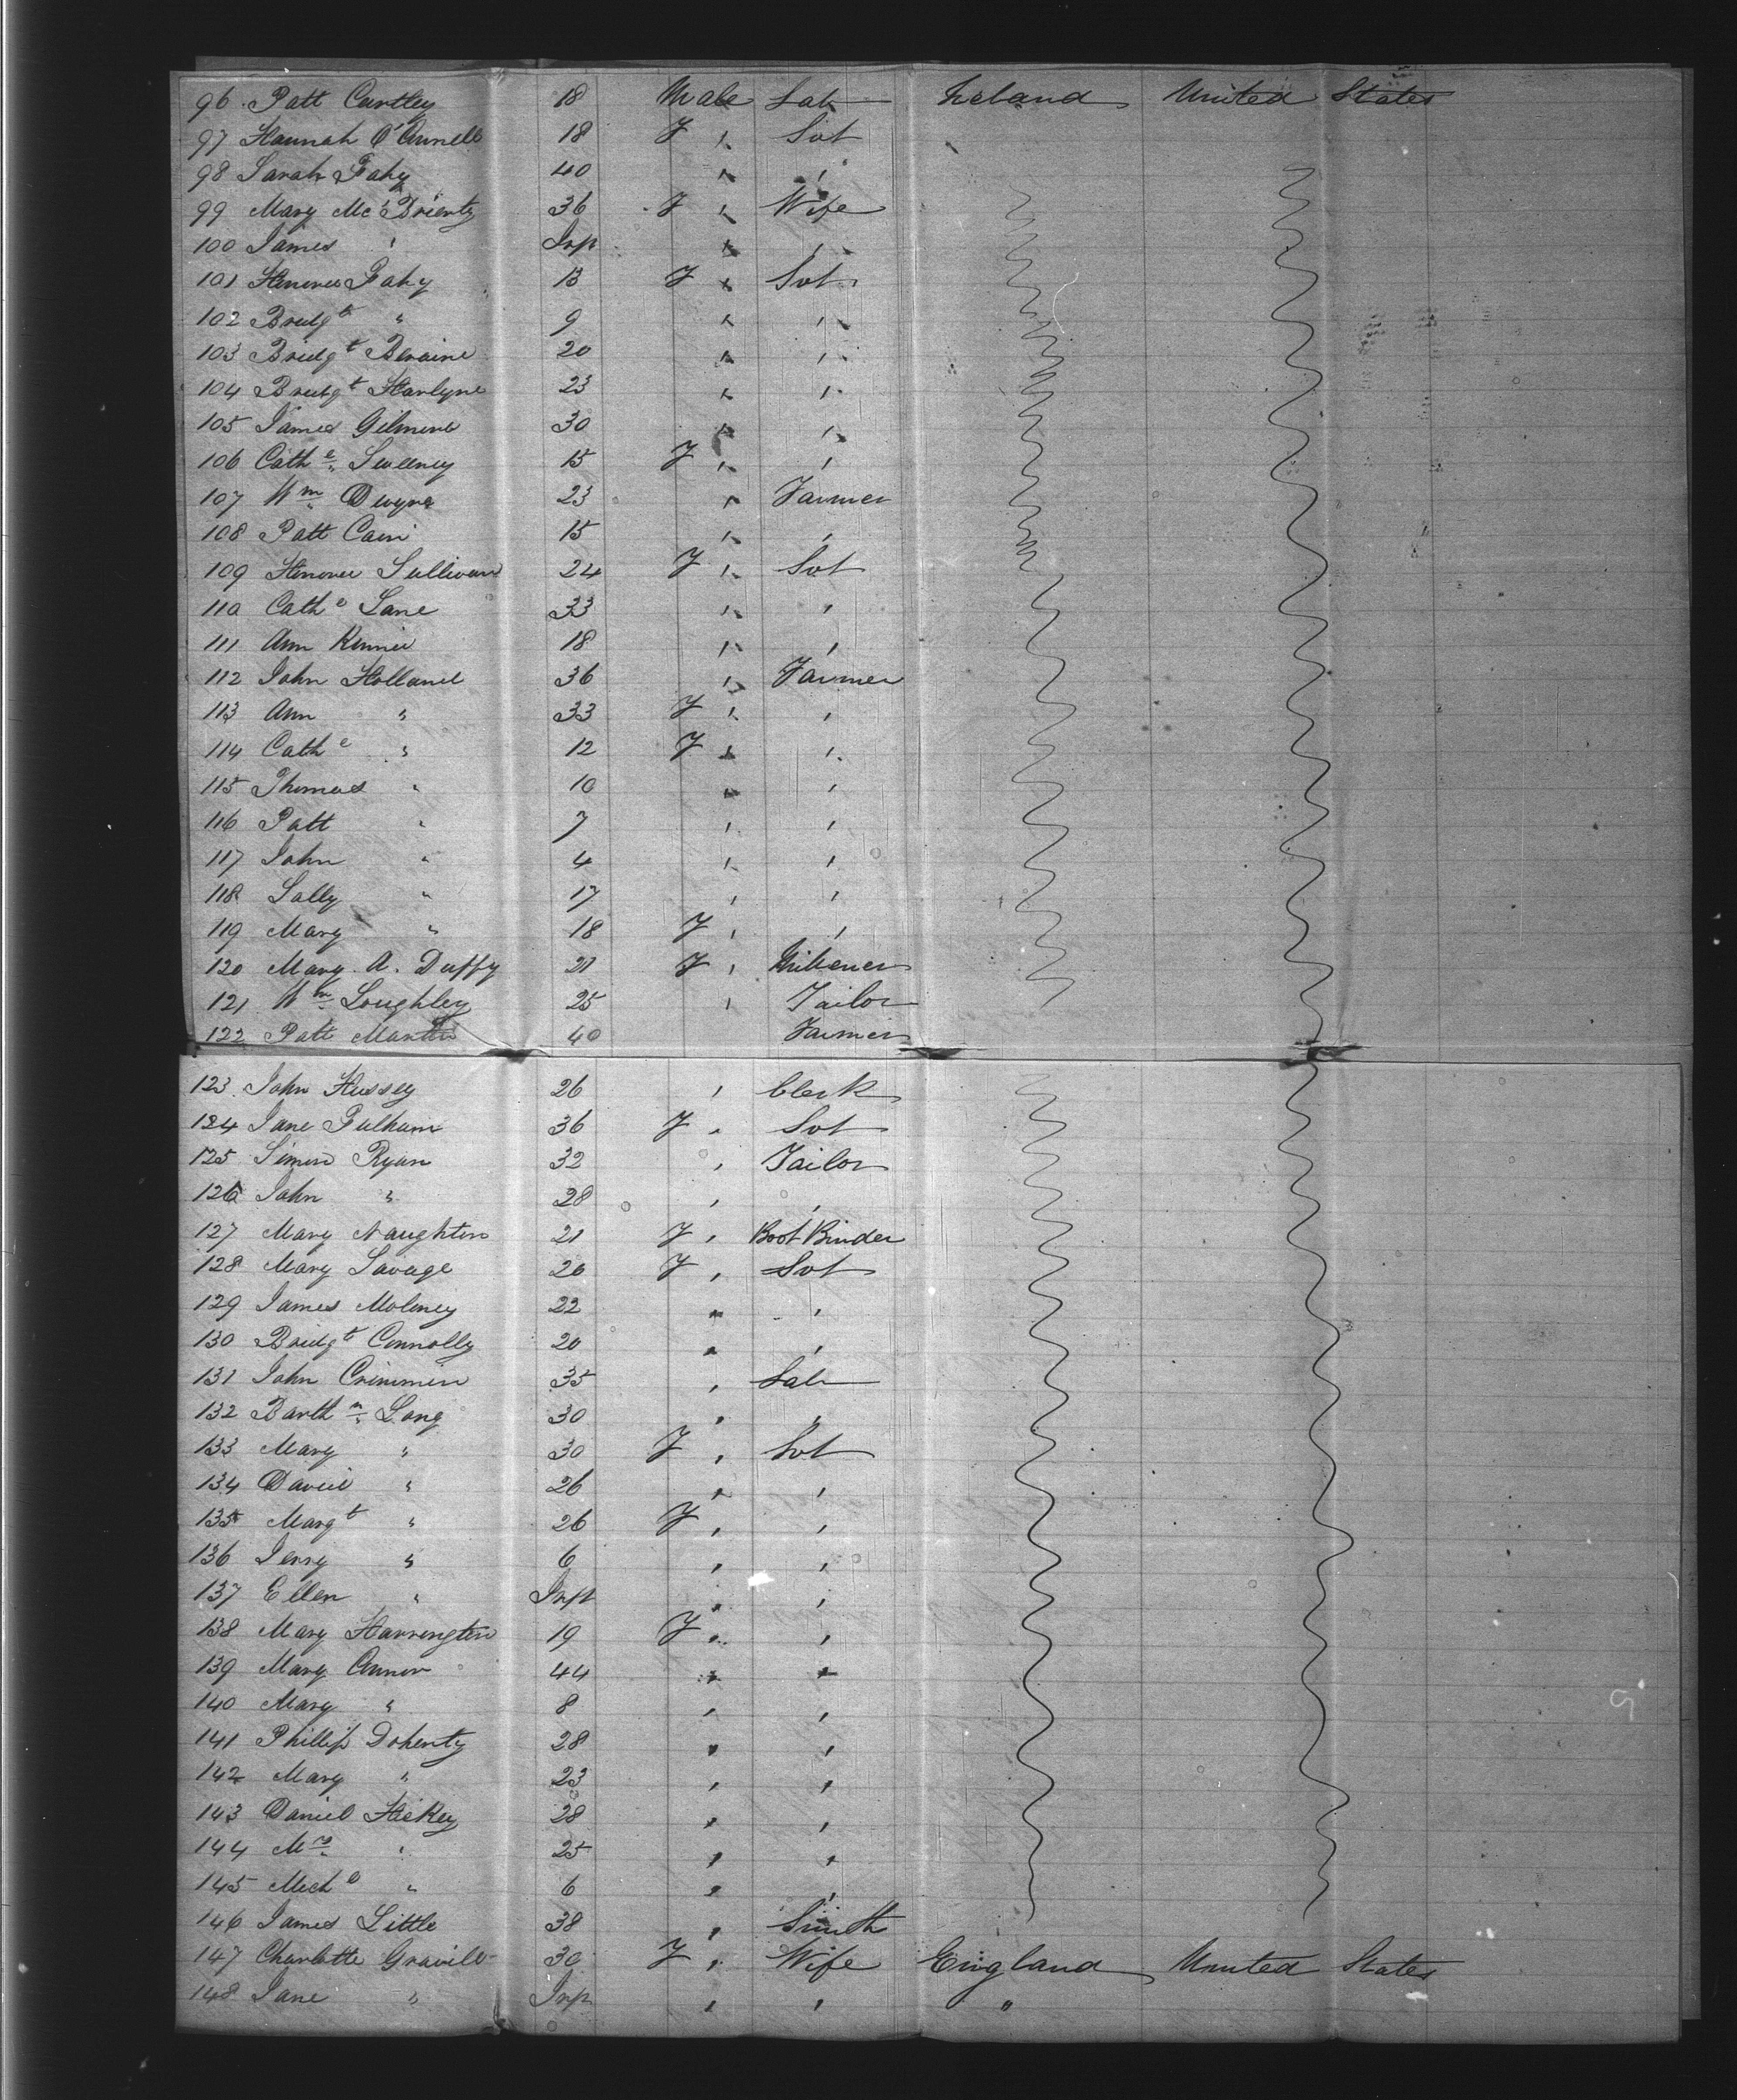 96 Patt Cartley 18 Male Lab Ireland United States
97 Hannah O'Connell 18 F " Svt
98 Sarah Fahy 40 " "
99 Mary Mc Brienty 36 F " Wife
100 James " Inf " "
101 Honora Fahy 13 F " Svt
102 Bridgt " 9 " "
103 Bridgt 20 " "
104 Bridgt 23 " "
105 James Gilmore 30 " "
106 Cathe Sweeney 15 F " "
107 Wm Dwyre 23 " Farmer
108 Patt Cain 15 " "
109 Honora Sullivan 24 F " Svt
110 Cathe Lane 33 " "
111 Ann 18 " "
112 John Holland 36 " Farmer
113 Ann " 33 F " "
114 Cathe " 12 F " "
115 Thomas " 10 " "
116 Patt " 7 " "
117 John " 4 " "
118 Sally " 17 " "
119 Mary " 18 F " "
120 Mary A. Duffy 21 F " Millener
121 Wm Loughley 25 " Tailor
122 Patt Martin 40 Farmer
123 John Hussey 26 " Clerk
124 Jane Fulham 36 F " Svt
125 Simon Ryan 32 " Tailor
126 John " 28 " "
127 Mary Naughton 21 F " Boot Binder
128 Mary Savage 20 F " Svt
129 James Moloney 22 " "
130 Bridgt Connolly 20 " "
131 John Crimmin 35 " Lab
132 Barthw Long 30 " "
133 Mary " 30 F " Svt
134 David " 26 " "
135 Margt " 26 F " "
136 Jerry " 6 " "
137 Ellen " Inft " "
138 Mary Harrington 19 F " "
139 Mary Connor 44 " "
140 Mary " 8 " "
141 Phillip Doherty 28 " "
142 Mary " 23 " "
143 Daniel Hickey 28 " "
144 Mrs " 25 " "
145 Michl " 6 " "
146 James Little 38 " Smith
147 Charlotte 30 F " Wife England United States
148 Jane " Inf " " "